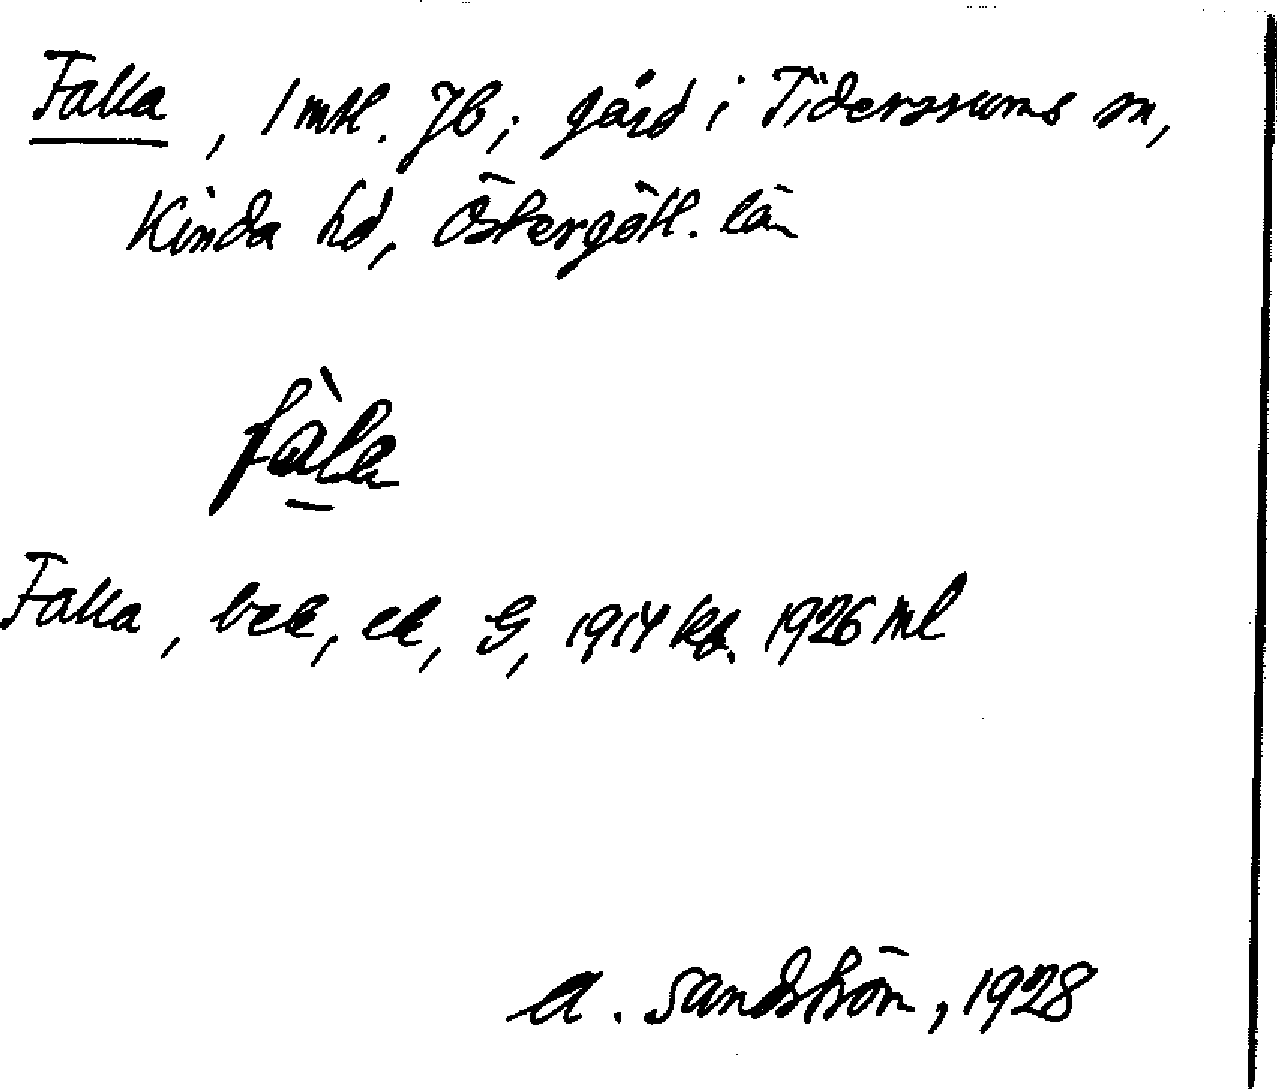 Falla, 1 mtl. Jb; gård i Tidersrums sn,
Kinda hd, Östergötl. län
fàla
Falla, bek, ek, G, 1914 kg. 1926 ml
A. Sandström, 1928